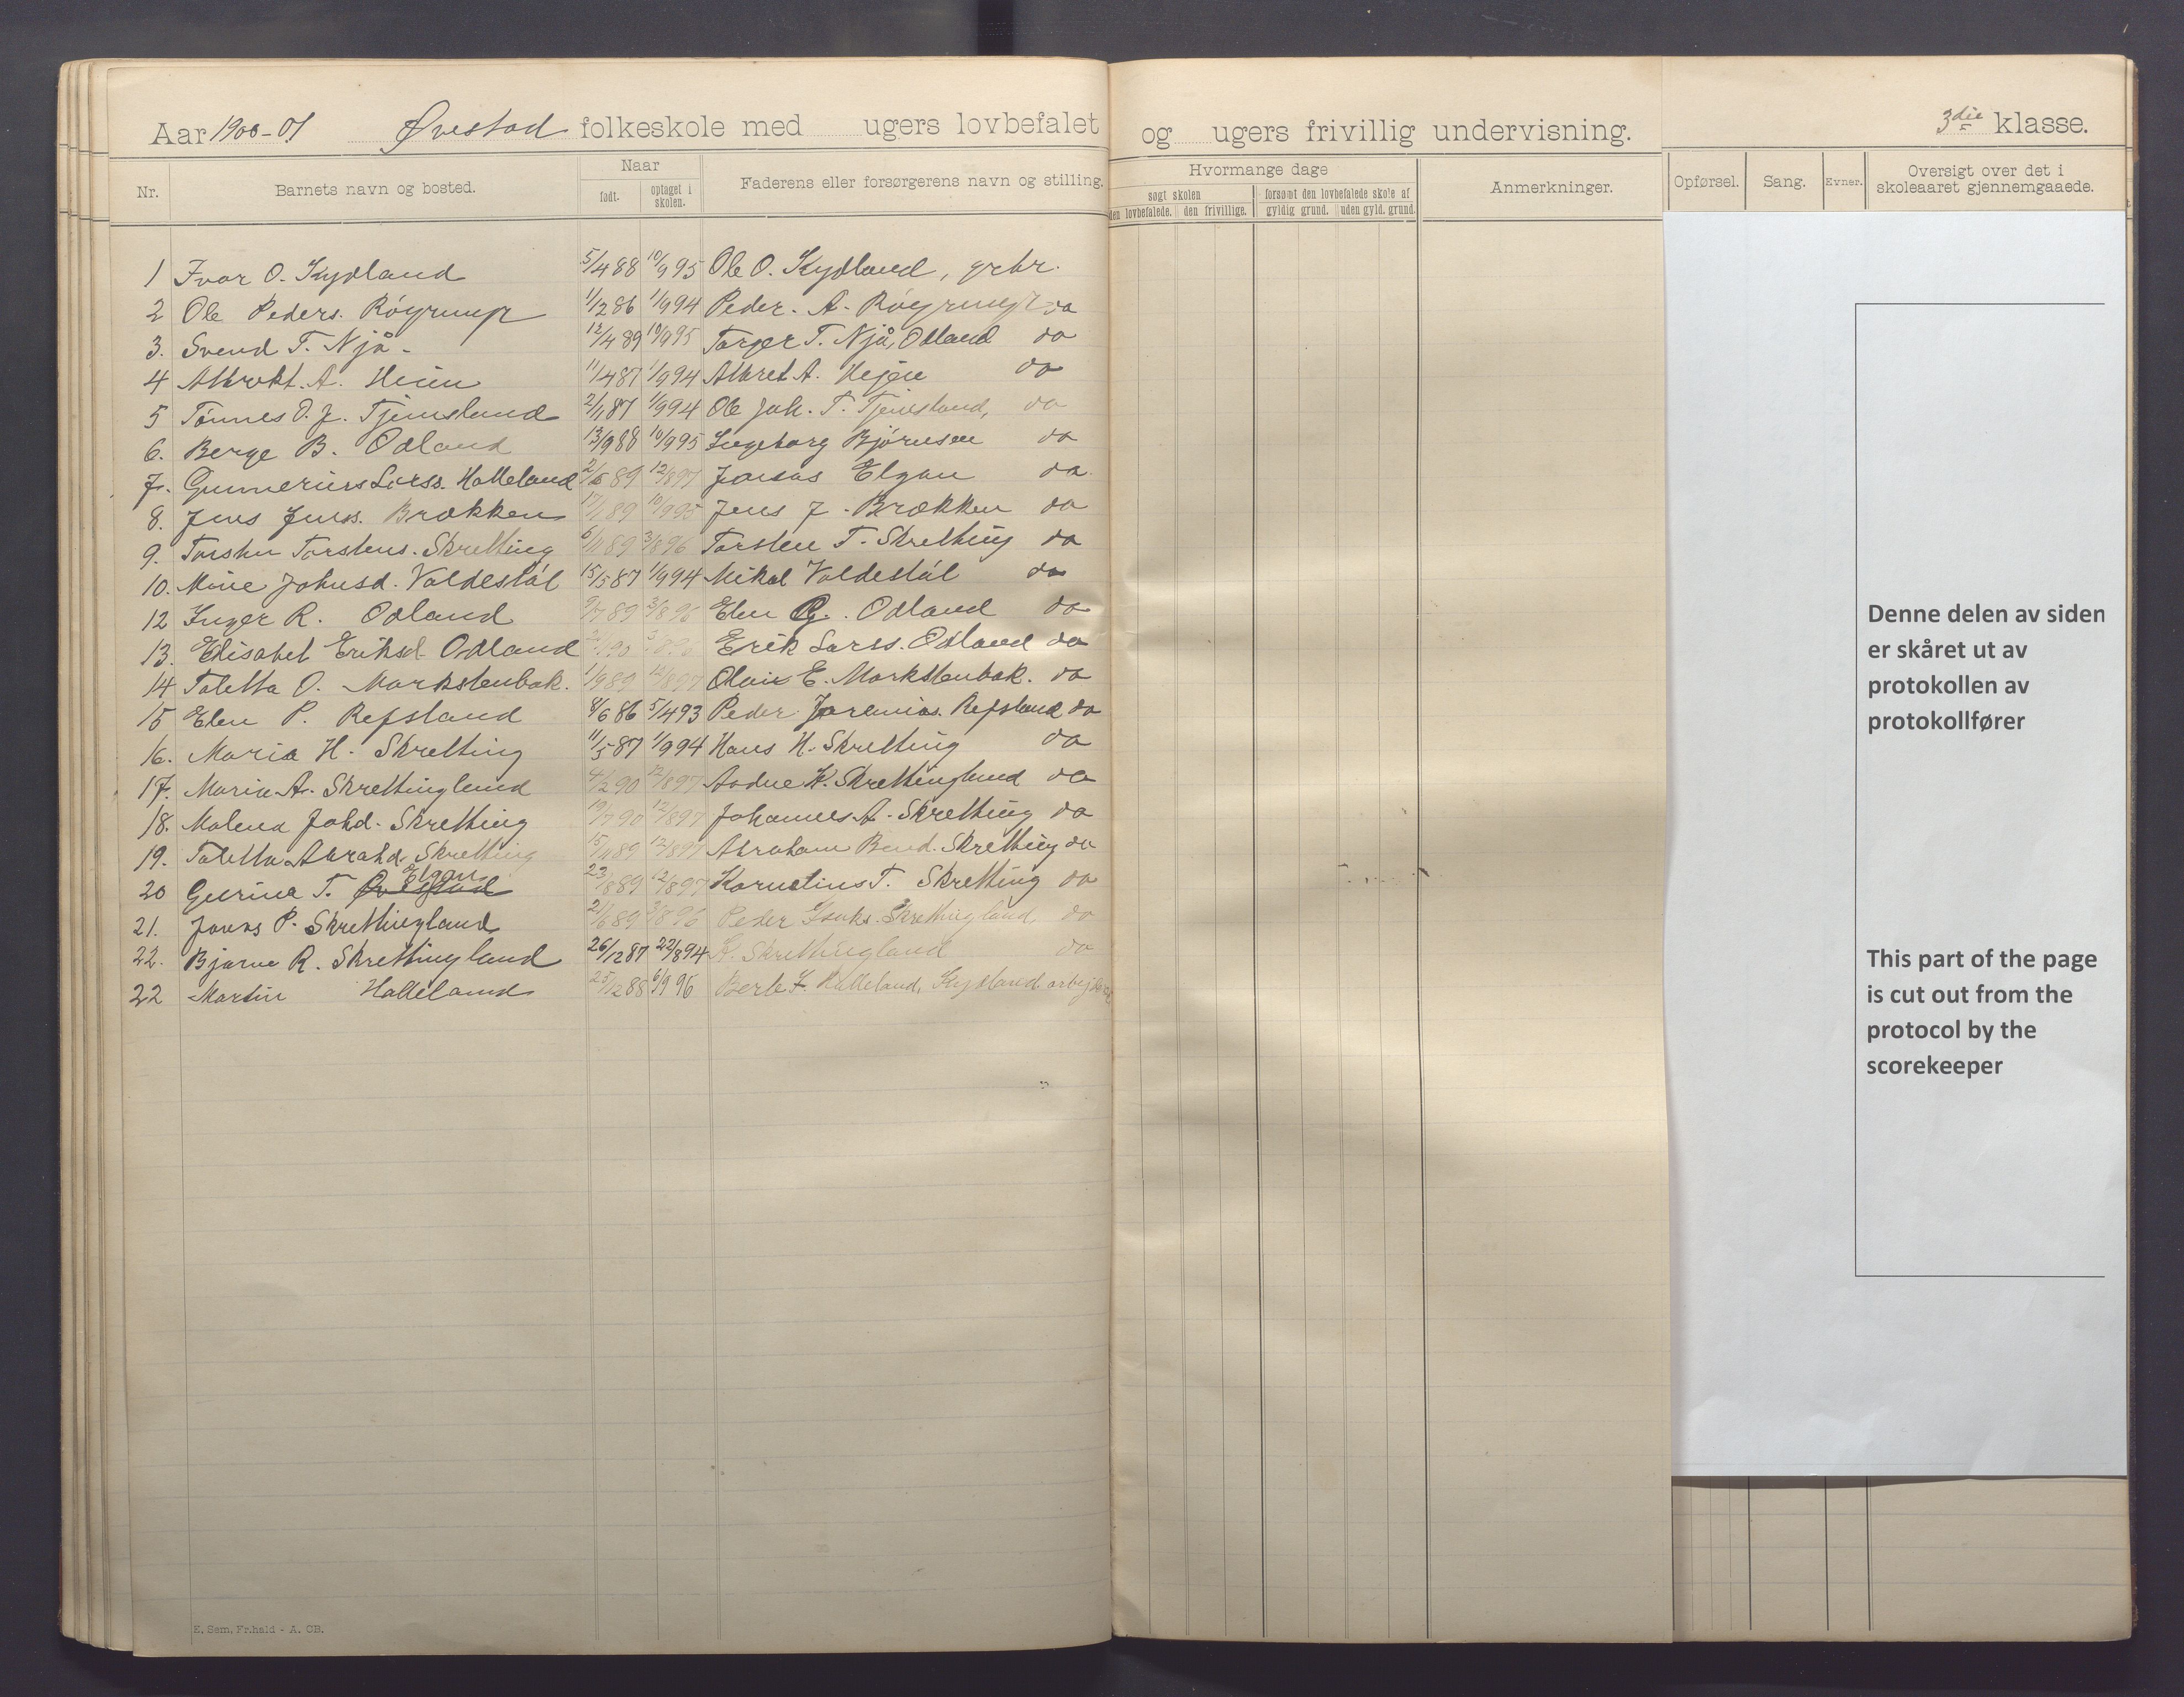 Aar 1900-01 Øvestad folkeskole med ugers lovbefalet og ugers frivillig undervisning. 3die klasse.
Nr. Barnets navn og bosted. Naar født. optaget i skolen. Faderens eller forsørgerens navn og stilling. Hvormange dage søgt skolen den lovbefalede. den frivillige. forsømt den lovbefalede skole af gyldig grund. uden gyld. grund. Anmerkninger. Opførsel. Sang. Evner. Oversigt over det i skoleaaret gjennemgaaede.
1 Ivar O. Kydland 5/4 88 10/9 95 Ole O. Kydland, grbr.
2 Ole Peders. Røyrump 1/12 86 1/9 94 Peder. A. Røyrump do
3. Svend T. Njå. 12/4 89 10/9 95 Torger T. Njå, Odland do
4 Albrekt. A. 11/4 87 1/9 94 Albret A. do
5 Tønnes O. J. Tjemsland 2/1 87 1/9 94 Ole Joh. T. Tjemsland, do
6. Berge B. Odland 13/9 88 10/9 95 Ingeborg Bjørnsen do
7. Gunnerius Larss. Halleland 89 12/8 97 Jonas Elgan do.
8. Jens Jenss. Brækken 17/1 89 10/9 95 Jens J. Brækken do
9. Torsten Torstens. Skretting 6/11 89 3/8 96 Torsten T. Skretting do
10. Mine Johnsd. Valdestål 15/5 87 1/9 94 Mikal Valdestål do
12 Inger R. Odland 9/7 89 3/8 96 Elen G. Odland do
13. Elisabet Eriksd. Odland 90 3/8 96 Erik Larss. Odland do
14 Taletta O. Markstenbak. 1/9 89 12/8 97 Olaus E. Markstenbak. do
15 Elen P. Refsland 8/6 86 5/4 93 Peder Jeremias. Refsland do
16. Maria H. Skretting 11/5 87 1/9 94 Hans H. Skretting do
17. Maria A. Skrettingland 4/2 90 12/8 97 Aadne K. Skrettingland do
18. Malena Johd. Skretting 19/7 90 12/8 97 Johannes A. Skretting do
19. Taletta Abrahd. Skretting 15/11 89 12/8 97 Abraham Bend. Skretting do
Elgan
20 Gurina T. Øvestad 23/8 89 12/8 97 Kornelius T. Skretting do
21. Jonas P. Skrettingland 21/6 89 3/8 96 Peder Isaks. Skrettingland do
22. Bjarne R. Skrettingland 26/12 87 22/8 94 K. Skrettingland do
22 Martin Halleland 25/12 88 6/9 96 Berte J. Halleland, Kydland
Denne delen av siden
er skåret ut av
protokollen av
protokollfører
This part of the page
is cut out from the
protocol by the
scorekeeper
E. Sem, Fr.hald - A. OB.